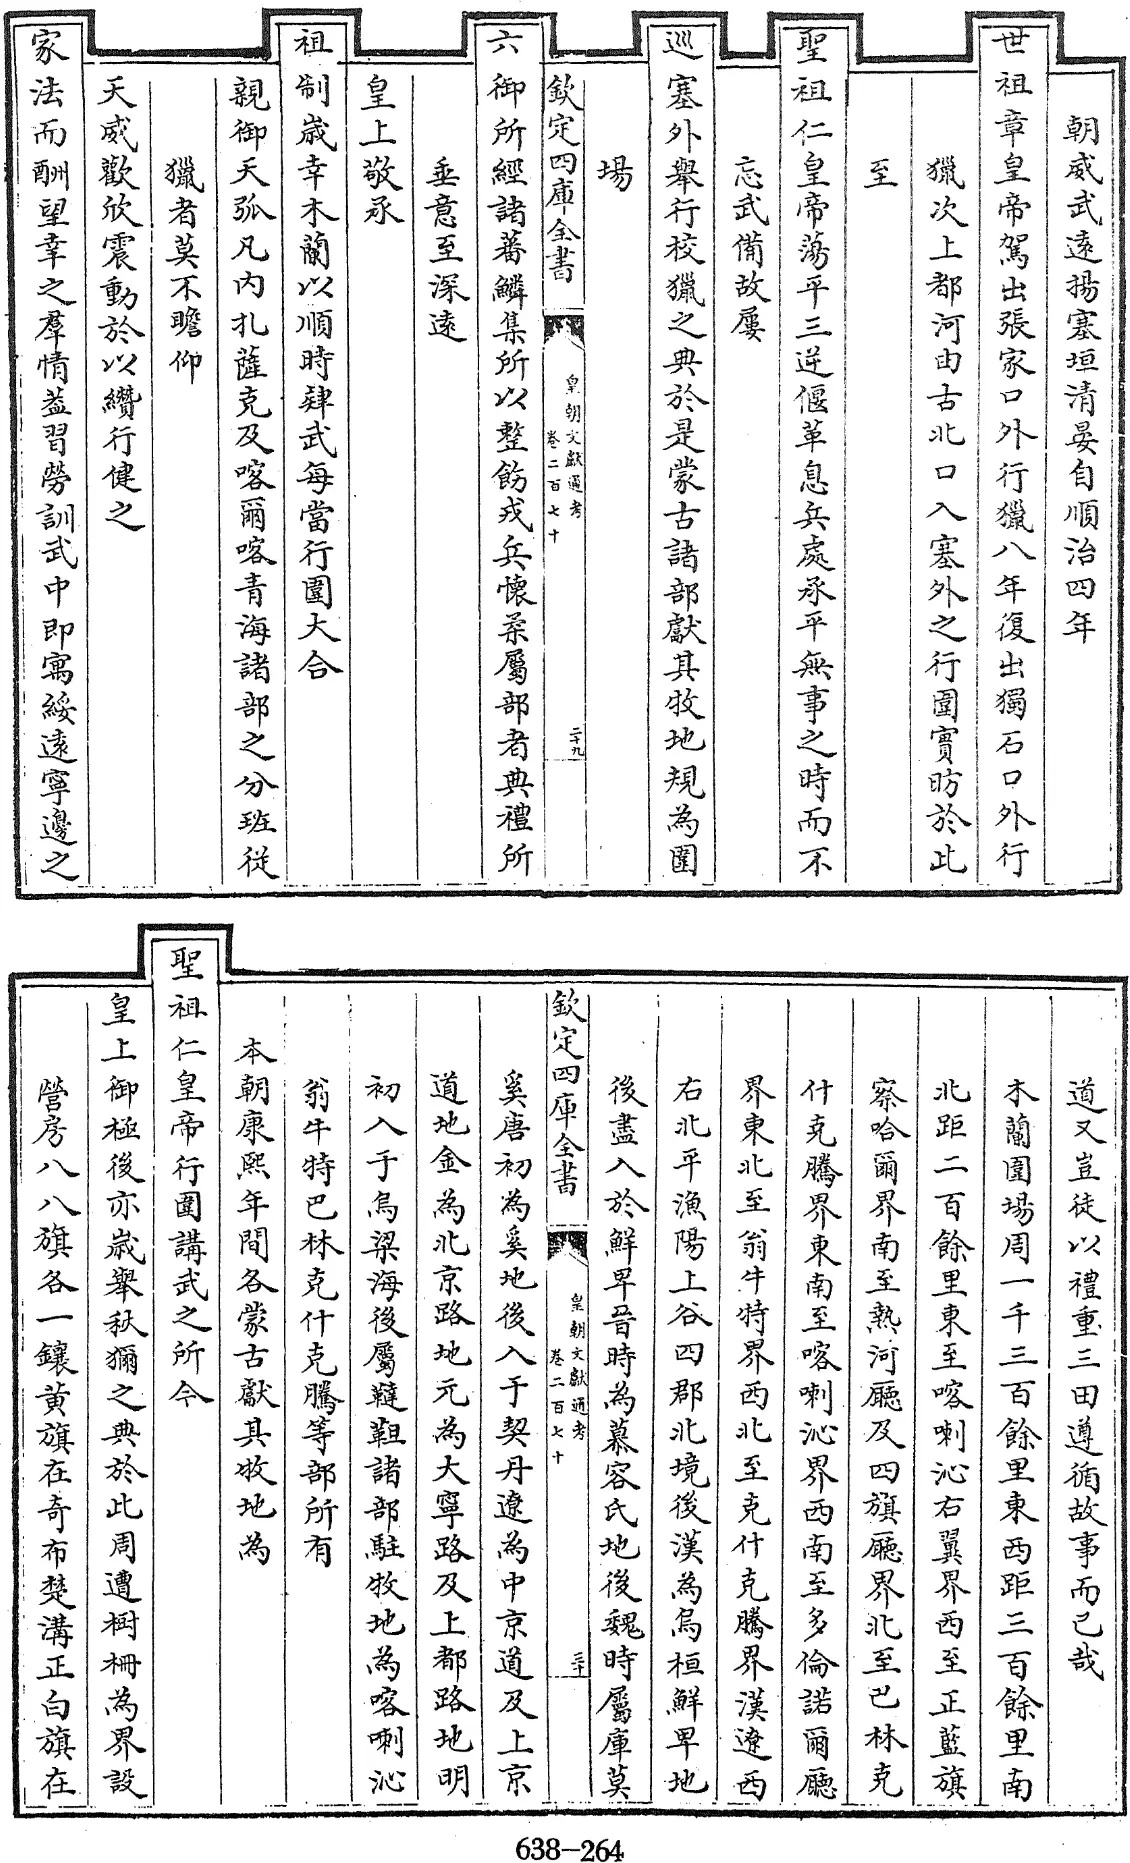 朝威武遠揚塞垣清晏自順治四年
世祖章皇帝駕出張家口外行獵八年復出獨石口外行
獵次上都河由古北口入塞外之行圍實昉於此
至
聖祖仁皇帝蕩平三逆偃革息兵處承平無事之時而不
忘武備故屢
巡塞外舉行校獵之典於是蒙古諸部獻其牧地規為圍
場
欽定四庫全書
皇朝文獻通考
卷二百七十
二十九
六御所經諸蕃鱗集所以整飭戎兵懷柔屬部者典禮所
垂意至深遠
皇上敬承
祖制歲幸木蘭以順時肄武每當行圍大合
親御天弧凡内扎薩克及喀爾喀青海諸部之分班從
獵者莫不瞻仰
天威歡欣震動於以纘行健之
家法而酬望幸之羣情蓋習勞訓武中即寓綏遠寧邊之
道又豈徒以禮重三田遵循故事而已哉
木蘭圍場周一千三百餘里東西距三百餘里南
北距二百餘里東至喀喇沁右翼界西至正藍旗
察哈爾界南至熱河廳及四旗廳界北至巴林克
什克騰界東南至喀喇沁界西南至多倫諾爾廳
界東北至翁牛特界西北至克什克騰界漢遼西
右北平漁陽上谷四郡北境後漢為烏桓鮮卑地
後盡入於鮮卑晉時為慕容氏地後魏時屬庫莫
欽定四庫全書
皇朝文獻通考
卷二百七十
三十
奚唐初為奚地後入于契丹遼為中京道及上京
道地金為北京路地元為大寧路及上都路地明
初入于烏梁海後屬韃靼諸部駐牧地為喀喇沁
翁牛特巴林克什克騰等部所有
本朝康熙年間各蒙古獻其牧地為
聖祖仁皇帝行圍講武之所今
皇上御極後亦歲舉秋獮之典於此周遭樹柵為界設
營房八八旗各一鑲黃旗在奇布楚溝正白旗在
638-264